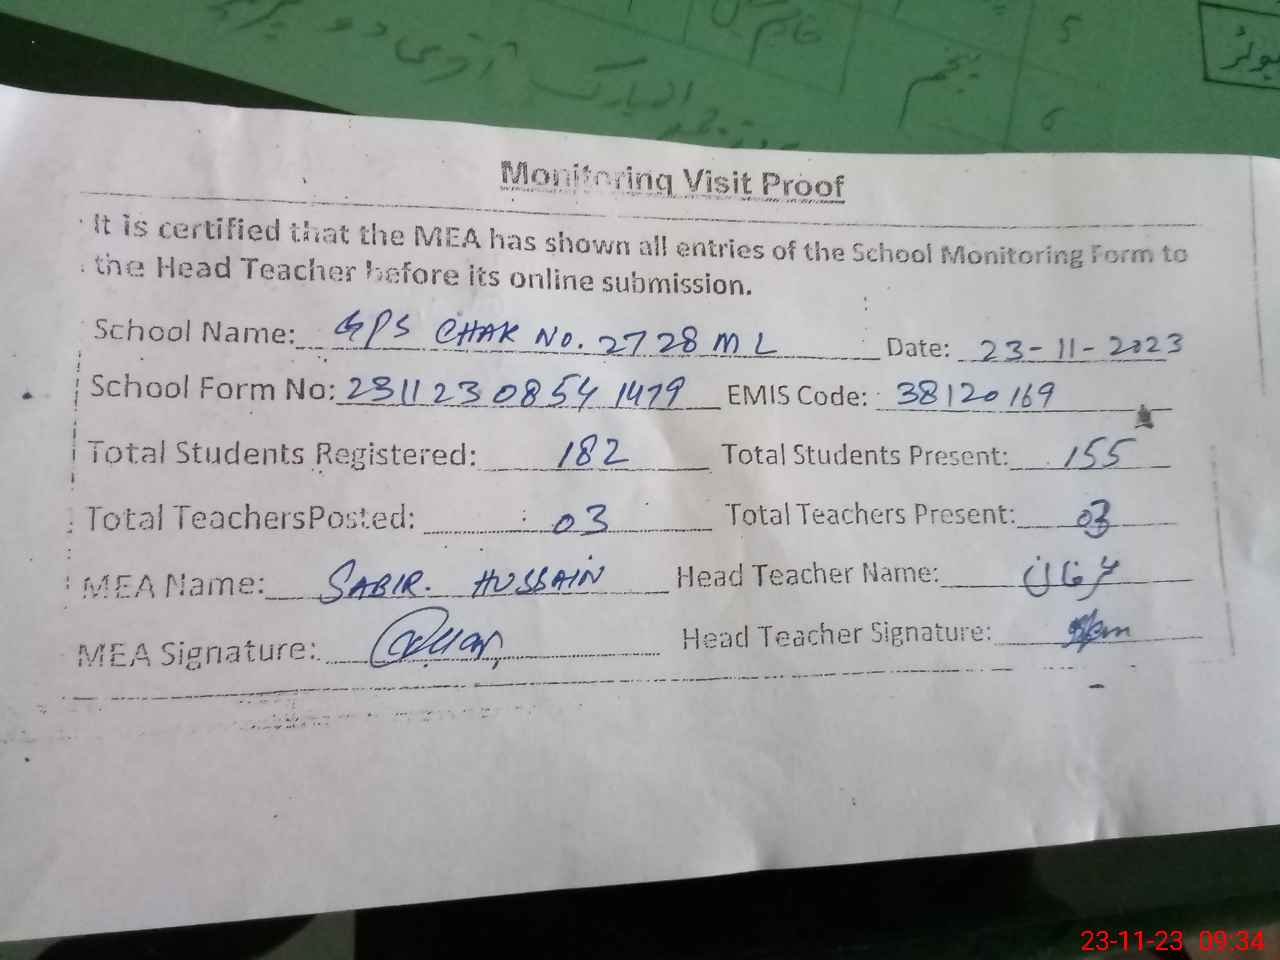 5
پنجم
6
المبارک آدمی دو
Monitoring Visit Proof
It is certified that the MEA has shown all entries of the School Monitoring Form to
the Head Teacher before its online submission.
School Name: GPS CHAK NO. 27 28 M L Date: 23-11-2023
School Form No: 2311 23 0854 1479 EMIS Code: 38120169
Total Students Registered: 182 Total Students Present: 155
Total TeachersPosted: 03 Total Teachers Present: 03
MEA Name: SABIR. HUSSAIN Head Teacher Name: عرفان
MEA Signature: Head Teacher Signature:
23-11-23 09:34